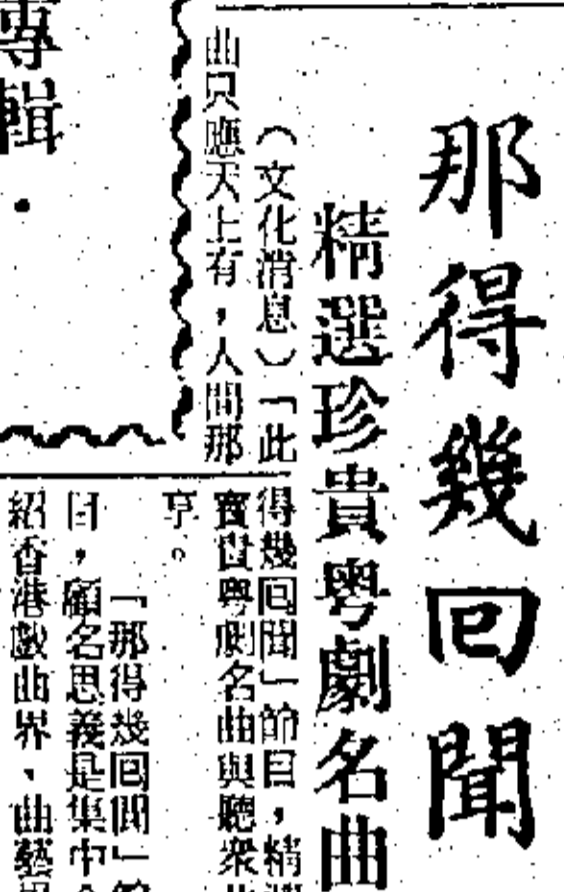 那得幾回聞
精選珍貴粵劇名曲
（文化消息）「此
曲只應天上有，人間那
得幾回聞」節目，精選
寶世粵劇名曲與聽衆
享。
「那得幾回聞」
目，顧名思義是集中
紹香港戲曲界、曲藝
專輯．